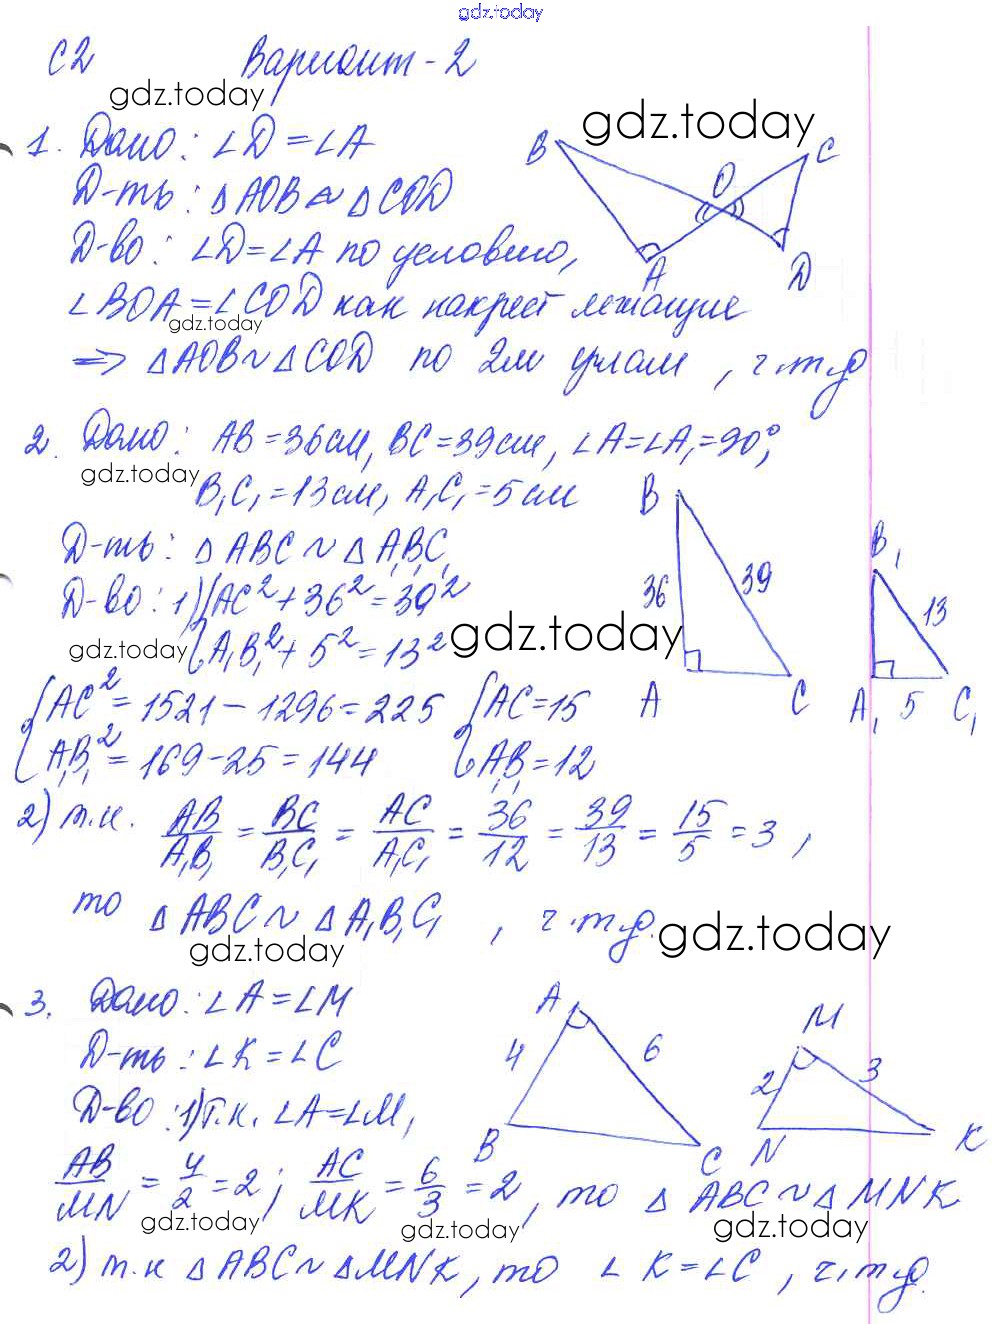 gdz.today
С2 Вариант - 2
gdz.today
gdz.today
1. Дано: ∠D = ∠A
B C O A D
Д-ть: △AOB ∾ △COD
Д-во: ∠D = ∠A по условию,
∠BOA = ∠COD как накрест лежащие
gdz.today
=> △AOB ~ △COD по 2м углам, ч.т.д
2. Дано: AB = 36см, BC = 39см, ∠A = ∠A₁ = 90°,
gdz.today
B₁C₁ = 13см, A₁C₁ = 5см
B 36 39 A C
B₁ 13 A₁ 5 C₁
Д-ть: △ABC ~ △A₁B₁C₁
Д-во: 1) { AC² + 36² = 39²
{ A₁B₁² + 5² = 13²
gdz.today
gdz.today
{ AC² = 1521 - 1296 = 225 { AC = 15
{ A₁B₁² = 169 - 25 = 144 { A₁B₁ = 12
2) т.к. AB/A₁B₁ = BC/B₁C₁ = AC/A₁C₁ = 36/12 = 39/13 = 15/5 = 3,
то △ABC ~ △A₁B₁C₁, ч.т.д.
gdz.today
gdz.today
3. Дано: ∠A = ∠M
A 4 6 B C
M 2 3 N K
Д-ть: ∠K = ∠C
Д-во: 1) т.к. ∠A = ∠M,
AB/MN = 4/2 = 2; AC/MK = 6/3 = 2, то △ABC ~ △MNK
gdz.today
gdz.today
gdz.today
2) т.к △ABC ~ △MNK, то ∠K = ∠C, ч.т.д.